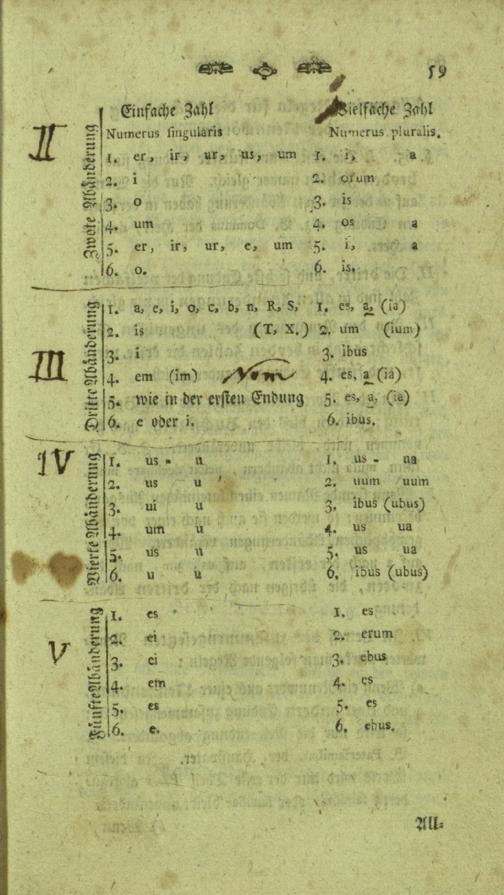 59
Einfache Zahl Vielfache Zahl
Numerus singularis Numerus pluralis.
II
Zwote Abänderung
1. er, ir, ur, us, um 1. i, a
2. i 2. orum
3. o 3. is
4. um 4. os a
5. er, ir, ur, e, um 5. i, a
6. o. 6. is.
III
Dritte Abänderung
1. a, e, i, o, c, b, n, R, S, 1. es, a, (ia)
2. is (T, X.) 2. um (ium)
3. i 3. ibus
4. em (im) Nom 4. es, a (ia)
5. wie in der ersten Endung 5. es, a, (ia)
6. e oder i. 6. ibus.
IV
Vierte Abänderung
1. us - u 1. us - ua
2. us u 2. uum uum
3. ui u 3. ibus (ubus)
4. um u 4. us ua
5. us u 5. us ua
6. u u 6. ibus (ubus)
V
Fünfte Abänderung
1. es 1. es
2. ei 2. erum
3. ei 3. ebus
4. em 4. es
5. es 5. es
6. e. 6. ebus.
All-